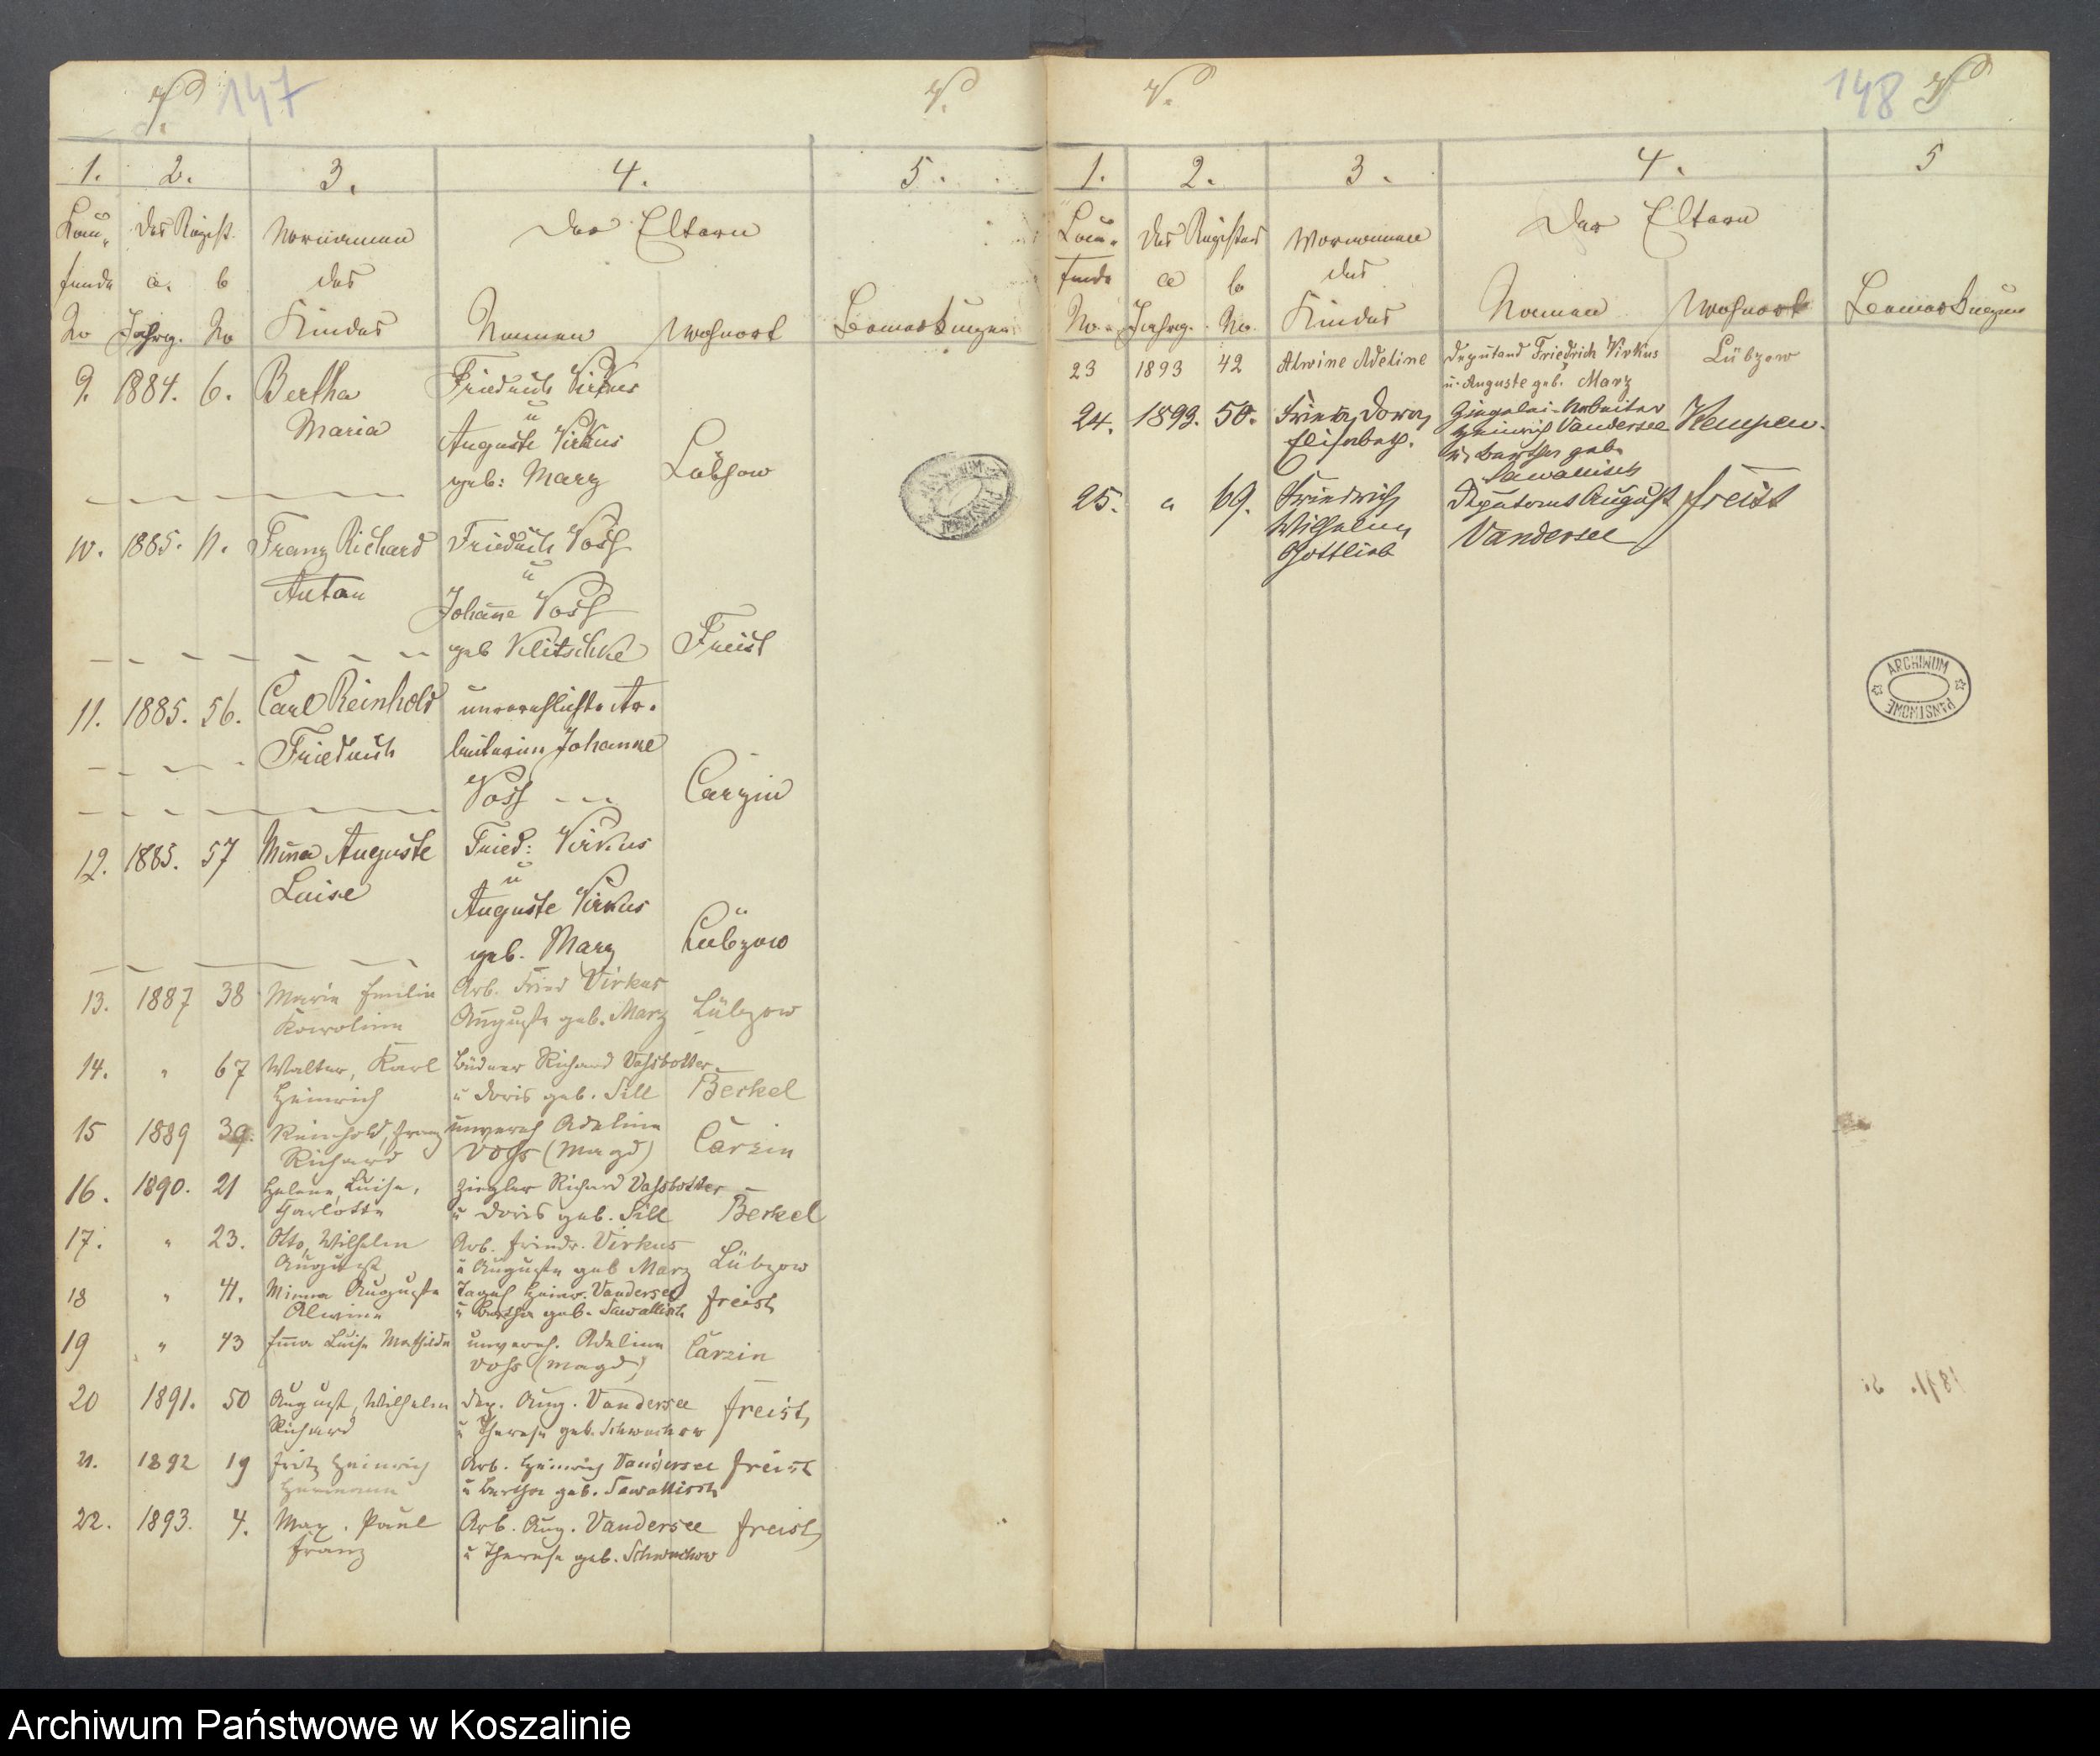 V. 147 V.
1. 2. 3. 4. 5.
Lau- des Regist. Vornamen Der Eltern
fende a. b des
No Jahrg. No Kindes Namen Wohnort Bemerkungen
9. 1884. 6. Bertha Friedrich Virkus
u
Maria Auguste Virkus
geb: Marz Lübzow
10. 1885. 11. Franz Richard Friedrich Voss
u
Anton Johanne Voss
geb Klitschke Freist
11. 1885. 56. Carl Reinhold unverehlichte Ar-
Friedrich beiterin Johanne
Voss Carzin
12. 1885. 57 Minna Auguste Fried: Virkus
u
Luise Auguste Virkus
geb. Marz Lübzow
13. 1887 38 Marie Emilie Arb. Fried Virkus
Karoline Auguste geb. Marz Lübzow
14. " 67 Walter, Karl Büdner Richard Vahsbotter
Heinrich u Doris geb. Sill Berkel
15 1889 39. Reinhold, Franz unvereh Adeline
Richard Vohs (Magd) Carzin
16. 1890. 21 Helene, Luise, Ziegler Richard Vahsbotter
Charlotte u Doris geb. Sill Berkel
17. " 23. Otto, Wilhelm Arb. Friedr. Virkus
August u Auguste geb Marz Lübzow
18 " 41. Minna Auguste Tagel Heinr. Vandersee
Alwine u Bertha geb. Sawallisch Freist
19 " 43 Emma Luise Mathilde unvereh. Adeline
Vohs (Magd) Carzin
20 1891. 50 August, Wilhelm Dep. Aug. Vandersee
Richard u Therese geb. Schwuchow Freist
21. 1892 19 Fritz Heinrich Arb. Heinrich Vandersee Freist
Hermann u Bertha geb. Sawallisch
22. 1893. 4. Max. Paul Arb. Aug. Vandersee Freist
Franz u Therese geb. Schwuchow
V. 148 V
1. 2. 3. 4. 5
Lau- des Registers Vornamen Der Eltern
fende a b des
No. Jahrg. No. Kindes Namen Wohnort Bemerkungen
23 1893 42 Alwine Adeline Deputand Friedrich Virkus Lübzow
u. Auguste geb. Marz
24. 1893. 50. Frieda Dora Ziegelei-Arbeiter
Elisabeth. Heinrich Vandersee Kempen.
u. Bertha geb.
Sawallisch
25. " 69. Friedrich Deputant August Freist
Wilhelm Vandersee
Gottlieb
ARCHIWUM
PAŃSTWOWE
Archiwum Państwowe w Koszalinie